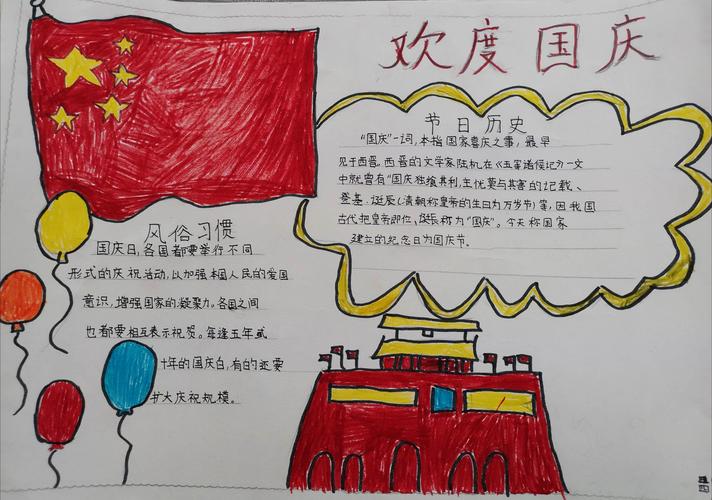 欢度国庆
节日历史
"国庆"一词,本指国家喜庆之事,最早
见于西晋。西晋的文学家陆机在《五等诸侯记》一文
中就曾有"国庆独飨其利,主忧莫与其害"的记载、
登基、诞辰(清朝称皇帝的生日为万岁节)等,因我国
古代把皇帝即位、诞辰称为"国庆"。今天称国家
建立的纪念日为国庆节。
风俗习惯
国庆日,各国都要举行不同
形式的庆祝活动,以加强本国人民的爱国
意识,增强国家的凝聚力。各国之间
也都要相互表示祝贺。每逢五年或
十年的国庆日,有的还要
扩大庆祝规模。